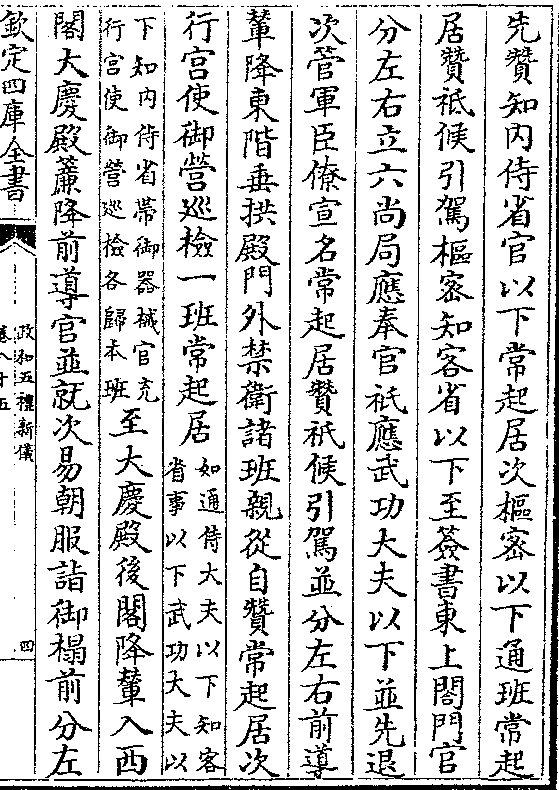 先贊知內侍省官以下常起居次樞密以下通班常起
居贊祗候引駕樞密知客省以下至簽書東上閤門官
分左右立六尚局應奉官祗應武功大夫以下並先退
次管軍臣僚宣名常起居贊祇候引駕並分左右前導
輦降東階垂拱殿門外禁衛諸班親從自贊常起居次
行宫使御營巡檢一班常起居
如通侍大夫以下知客
省事以下武功大夫以
下知內侍省帶御器械官充
行宫使御營巡檢各歸本班
至大慶殿後閣降輦入西
閣大慶殿簾降前導官並就次易朝服詣御榻前分左
欽定四庫全書
政和五禮新儀
卷八十五
四